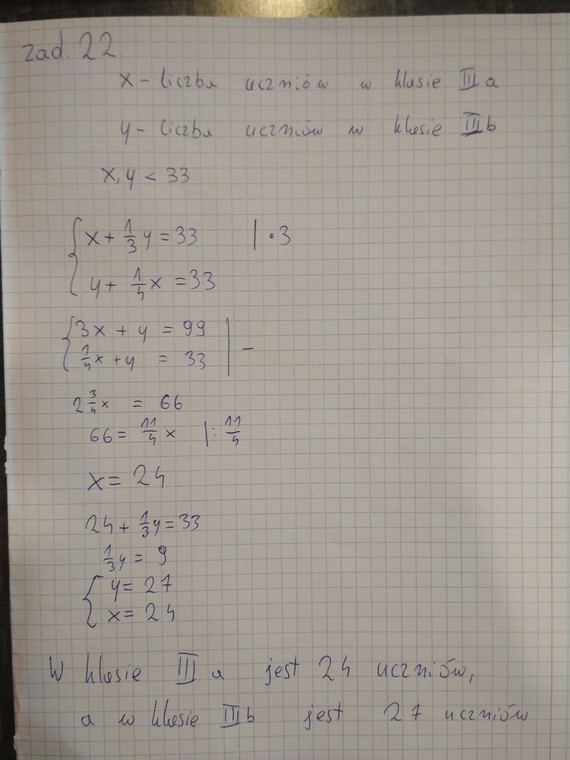 zad. 22
x - liczba uczniów w klasie III a
y - liczba uczniów w klasie III b
x, y < 33
x + 1/3 y = 33 | • 3
y + 1/4 x = 33
3x + y = 99
1/4 x + y = 33 | -
2 3/4 x = 66
66 = 11/4 x | : 11/4
x = 24
24 + 1/3 y = 33
1/3 y = 9
y = 27
x = 24
W klasie III a jest 24 uczniów,
a w klasie III b jest 27 uczniów